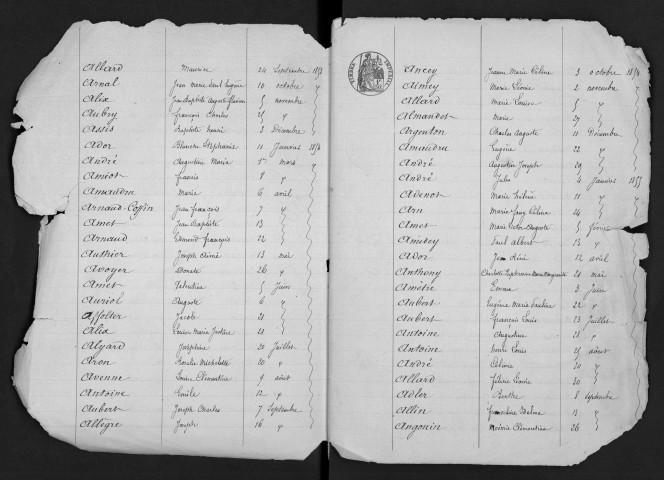 Allard Maurice 24 Septembre 1853
Arnal Jean Marie Paul Eugène 10 octobre "
Alix Jean Baptiste Auguste 5 novembre "
Aubry François Charles 25 "
Assis Baptiste Henri 3 Décembre "
Ador Blanche Stéphanie 11 Janvier 1854
André Augustine Marie 1er mars "
Amiot Francis 8 "
Amaudru Marie 6 avril
Arnaud-Coffin Jean François 7 "
Amet Jean Baptiste 13
Arnaud Edmond François 22
Authier Joseph Aimé 13 mai
Avoyer Donate 26 "
Amet Valentine 5 Juin
Auriol Auguste 6 "
Affolter Jacob 21
Alix Louise Marie Justine 28
Alyard Joséphine 20 Juillet
Aron Coralie 20 "
Avenne Louise Clémentine 9 août
Antoine Emile 12 "
Aubert Joseph Charles 7 Septembre
Allègre Joseph 16 "
TIMBRE IMPERIAL
Ancey Jeanne Marie Céline 3 octobre 1854
Aimey Marie Léonie 2 novembre "
Allard Marie Louise 5 "
Almandet Marie 27 "
Argenton Charles Auguste 11 Décembre
Amaudru Eugène 22 "
André Augustin Joseph 29
André Jules 4 Janvier 1855
Avenot Marie 11 "
Arn Marie Céline 24
Ames Marie Victor Auguste 5 février
Amédey Paul Albert 13 "
Ador Jean Rémi 12 avril
Anthony Charlotte Marguerite 21 mai
Amètre Emma 3 Juin
Aubert Eugénie Marie Pauline 22 "
Aubert François Louis 23 Juillet
Antoine Augustine 25
Antoine Henri Louis 25 août
André Céline 30 "
Allard 30
Adler Berthe 8 Septembre
Allin 13 "
Angonin Clémentine 26